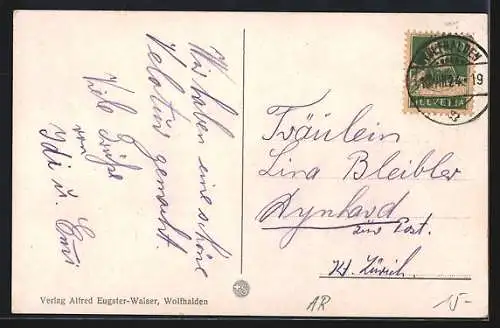 Wir haben eine schöne
Velotur gemacht.
Viele Grüße
von
Idi u. Emi
Fräulein
Lina Bleibler
Rynhard
zur Post.
Kt. Zürich.
HELVETIA
Verlag Alfred Eugster-Walser, Wolfhalden
AR
15-